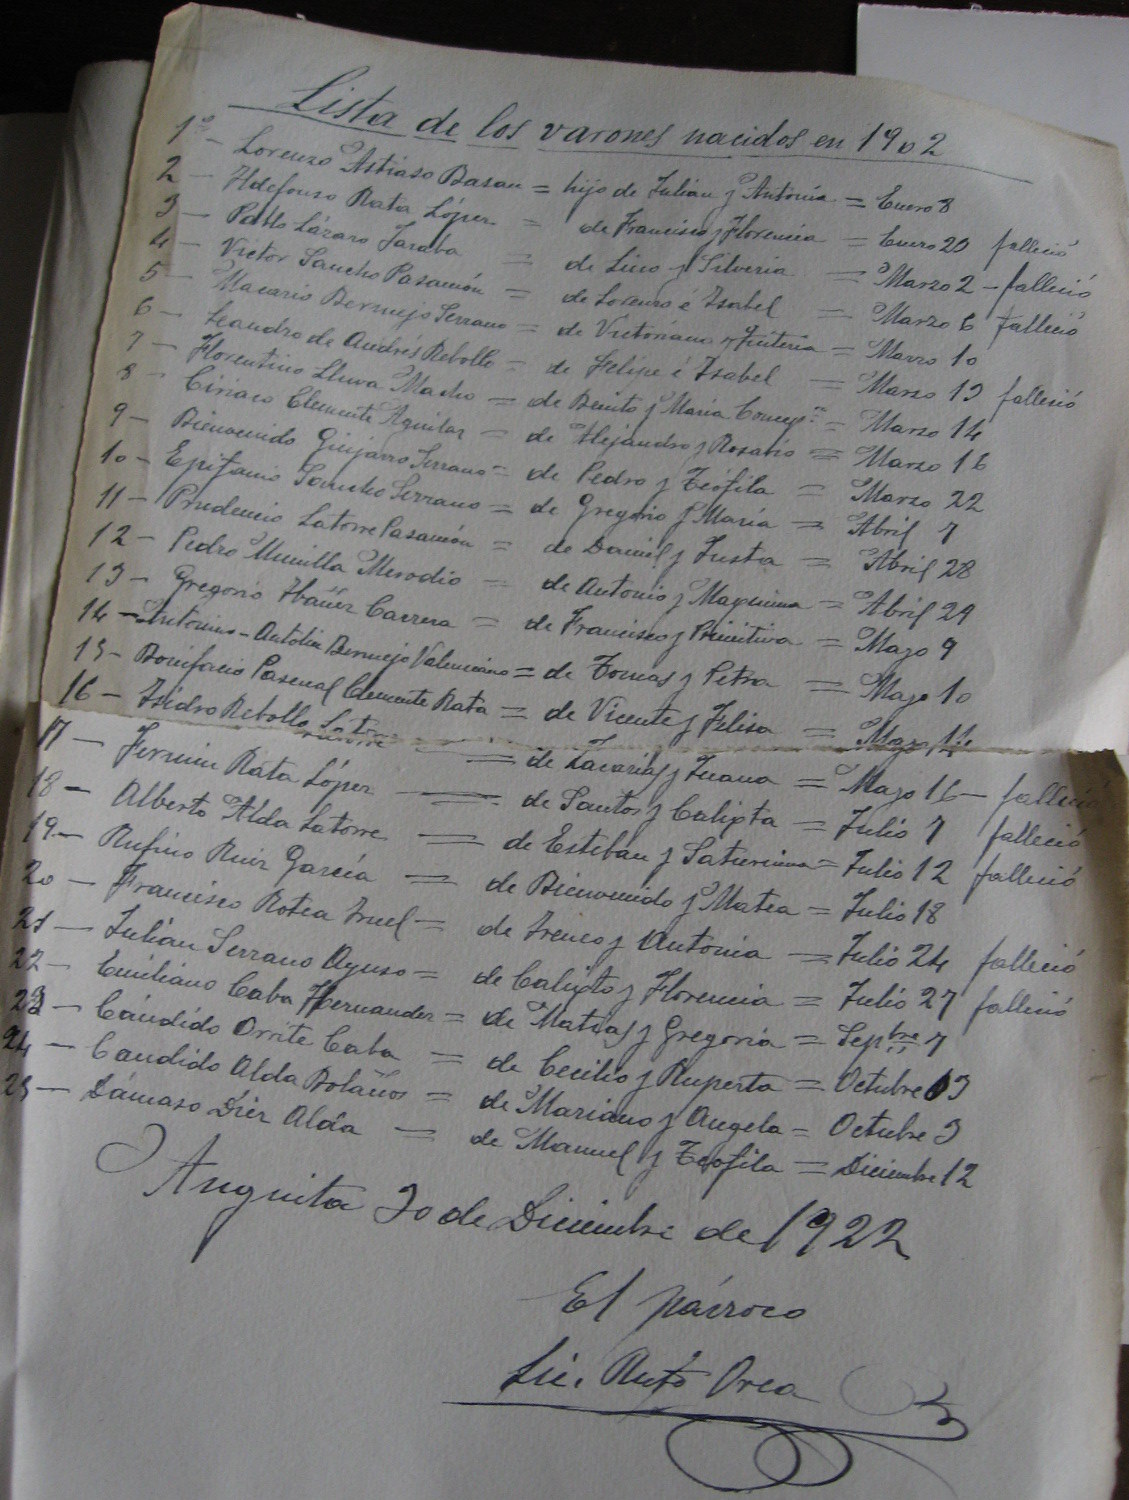 Lista de los varones nacidos en 1902
1º - Lorenzo Astiaso Basan = hijo de Julián y Antonia = Enero 8
2 - Ildefonso Rata López = de Francisco y Florencia = Enero 20 falleció
3 - Pablo Lázaro Taraba = de Lino y Silveria = Marzo 2 - falleció
4 - Victor Sancho Pasamón = de Lorenzo é Isabel = Marzo 6 falleció
5 - Macario Bermejo Serrano = de Victoriano y Quiteria = Marzo 10
6 - Leandro de Andrés Rebollo = de Felipe é Isabel = Marzo 13 falleció
7 - Florentino Lluva Macho = de Benito y María Concepn = Marzo 14
8 - Ciriaco Clemente Aguilar = de Alejandro y Rosario = Marzo 16
9 - Bienvenido Guijarro Serrano = de Pedro y Teófila = Marzo 22
10 - Epifanio Sancho Serrano = de Gregorio y María = Abril 7
11 - Prudencio Latorre Pasamón = de Daniel y Justa = Abril 28
12 - Pedro Munilla Merodio = de Antonio y Maximina = Abril 29
13 - Gregorio Ibañez Carrera = de Francisco y Primitiva = Mayo 9
14 - Antonino - Antolin Bermejo Valenciano = de Tomas y Petra = Mayo 10
15 - Bonifacio Pascual Clemente Rata = de Vicente y Felisa = Mayo 14
16 - Isidro Rebollo Latorre = de Zacarias y Juana = Mayo 16 - falleció
17 - Fermin Rata López = de Santos y Calixta = Julio 7 falleció
18 - Alberto Alda Latorre = de Esteban y Saturnina = Julio 12 falleció
19 - Rufino Ruiz García = de Bienvenido y Matea = Julio 18
20 - Francisco Rotea Iruel = de Ireneo y Antonia = Julio 24 falleció
21 - Julián Serrano Ayuso = de Calixto y Florencia = Julio 27 falleció
22 - Emiliano Caba Hernandez = de Matias y Gregoria = Sepbre 7
23 - Cándido Orrite Caba = de Cecilio y Ruperta = Octubre 3
24 - Candido Alda Bolaños = de Mariano y Angela = Octubre 3
25 - Dámaso Diez Alda = de Manuel y Teófila = Diciembre 12
Anguita 30 de Diciembre de 1922
El párroco
Lic. Rufo Orea